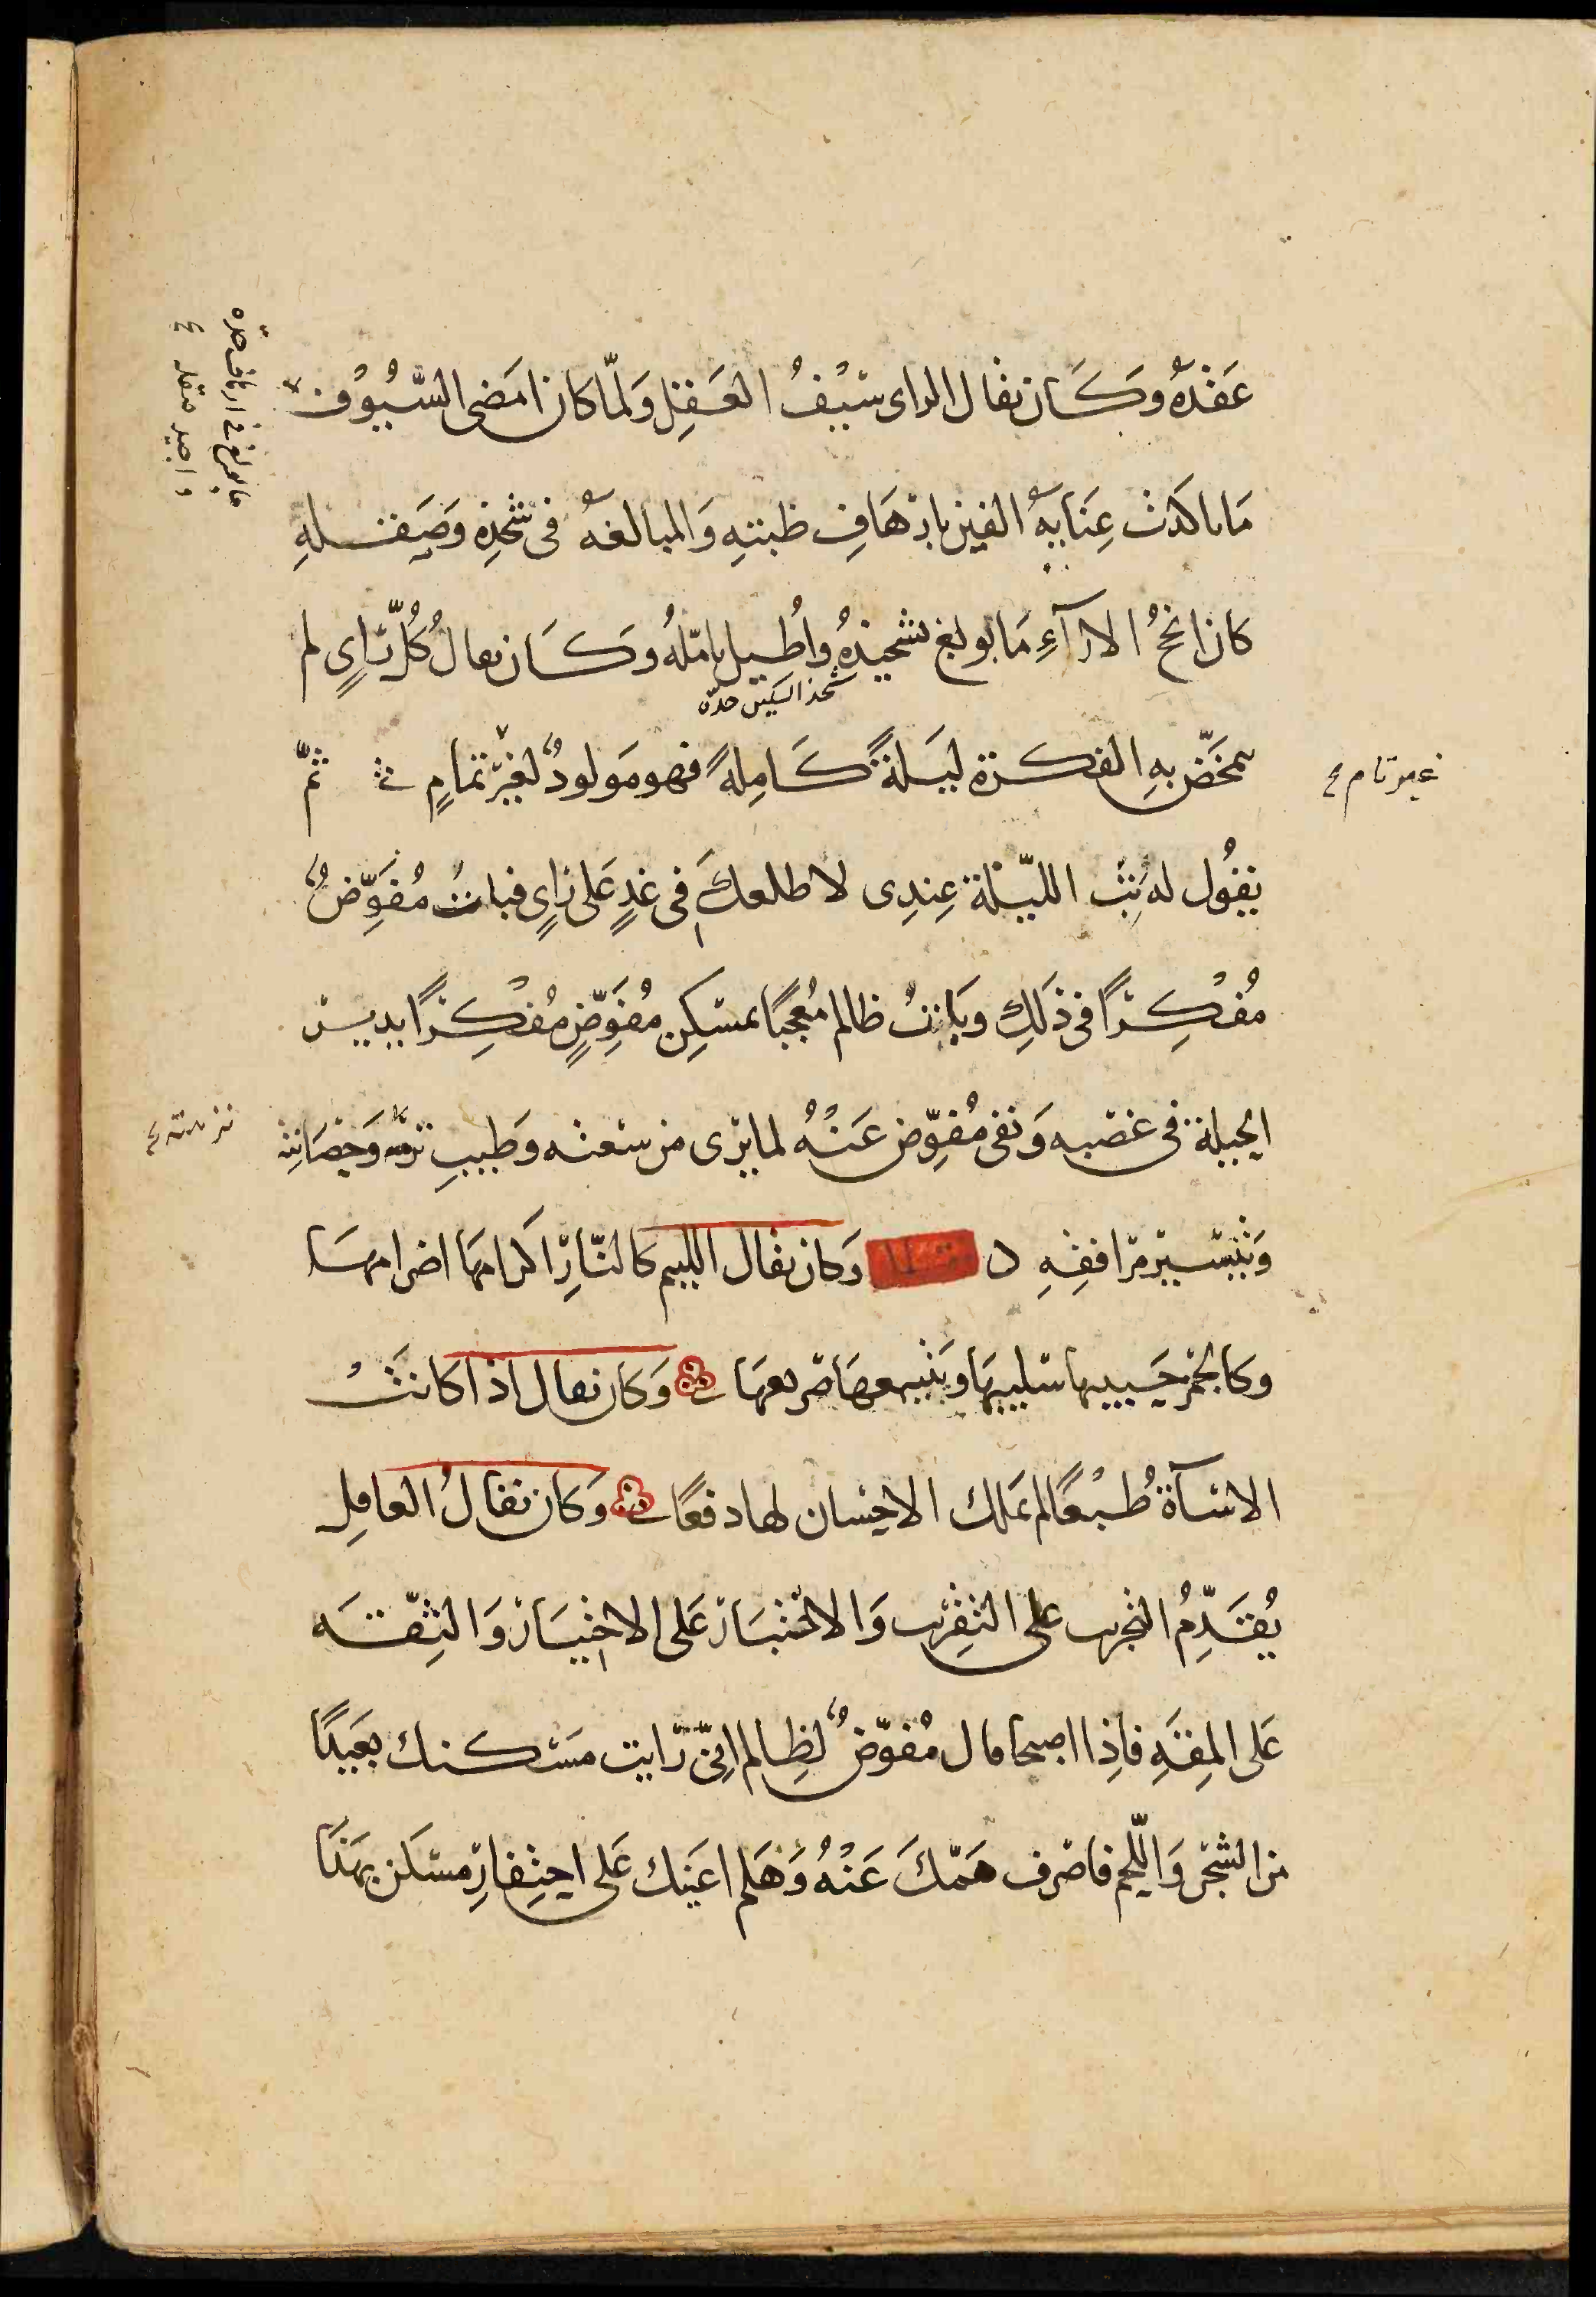 عَقْدُهُ وَكَانَ يقال الراى سَيْفُ العَقْلِ وَلمّا كان امضى السُّيُوف
مَا تاكدت عِنَايَةُ القين بارْهَافِ ظبتهِ وَالمبالغة فى شَحْذِهِ وَصَقلهِ
كان انجحُ الآرآءِ مَا بولغ تشحيذهُ واُطيل تامّلهُ وَكَان يقالُ كُلّ رَايٍ لم
شحذ السكين حدّه
تمخّض بهِ الفكرة ليلَةً كَامِلةً فهو مَولودٌ لغيْر تمامٍ ثمّ
غير تام
يقُول له بِت الليّلة عِندِى لاطلعك فى غدٍ عَلى رَايٍ فبات مُفَوِّضٌ
مُفكِرًا فى ذلِك وبَات ظالم مُعجَبًا بمسكن مُفوّضٍ مُفكِرًا بتدبير
الحيلة فى غصبه وَنفى مُفوّض عَنْهُ لما يرَى من سعته وَطيبِ تربته وَحصَانته
وَتيسير مرَافقِهِ وَكان يقال اللئيم كالنّارِ اكرامهَا اضرامهَا
وكالخمر حَبيبها سَليبهَا وَتبيعهَا صرَيعهَا وَكان يقال اذا كانَتْ
الاسآءة طُبْعًا لم يملك الاحسان لها دفعًا وَكان يقالُ العاقل
يُقَدِّمُ التجريب على التقريب وَالاختبَار عَلى الاختيَار وَالثِقَـه
عَلى المِقَهِ فاذِا اصبحا قال مُفوّضٌ لظِالم انِّى رَايت مسكنك بعَيدًا
من الشجر وَاللّحم فاصرف هَمّكَ عَنْهُ وَهَلم اعينك عَلى احتفارِ مسكن بهَذَا
ما بولغ فى ارهاف حدّه
واجيد صقله